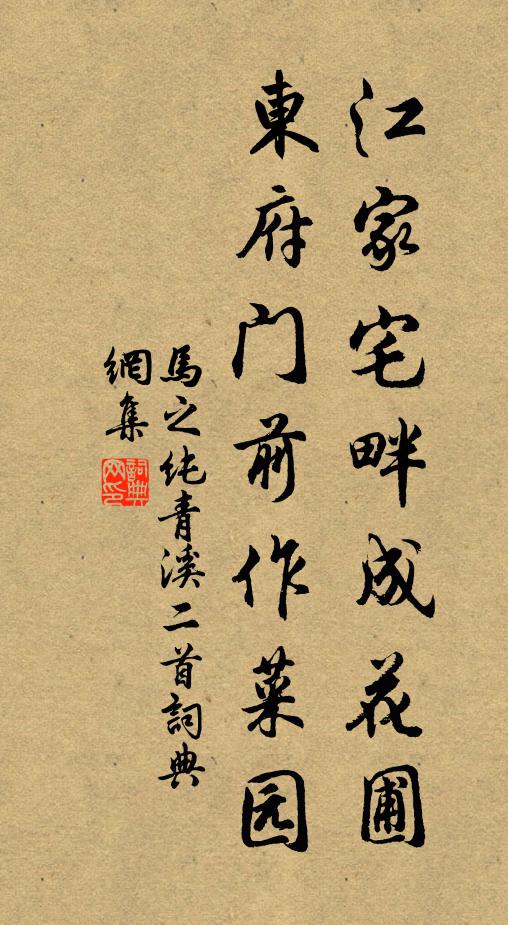 江家宅畔成花圃
東府门前作菜园
馬之纯青溪二首詞典
網集
詞典网印